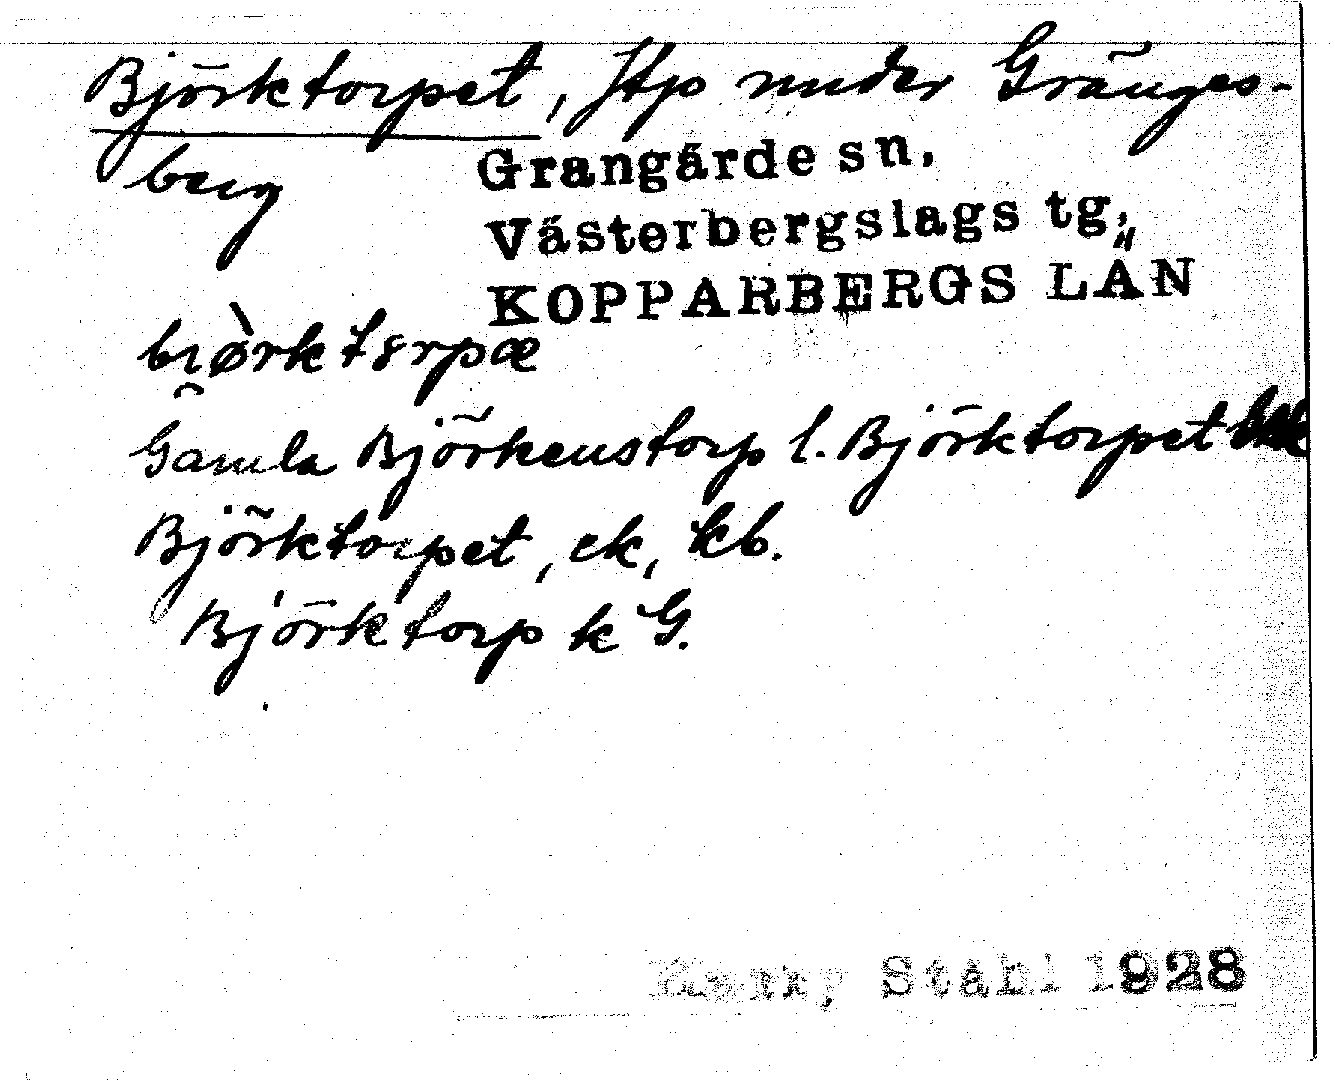 Björktorpet, Htp under Gränges-
berg
Grangärde sn.
Västerbergslags tg.
KOPPARBERGS LÄN
Gamla Björkenstorp l. Björktorpet
Björktorpet, ek, kb.
Björktorp k G.
Harry Ståhl 1928